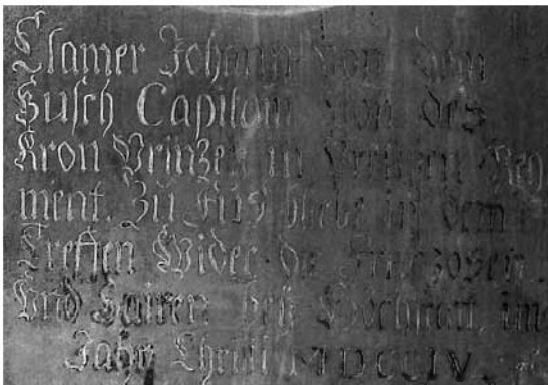 Clamer Johann von dem
Busch Capitain von des
Kron Prinzen in Reg
ment. Zu Füs bliebe in dem
Treffen Wider die Franzosen
Vnd Bairen bey im
Jahr Christi MDCCIV.